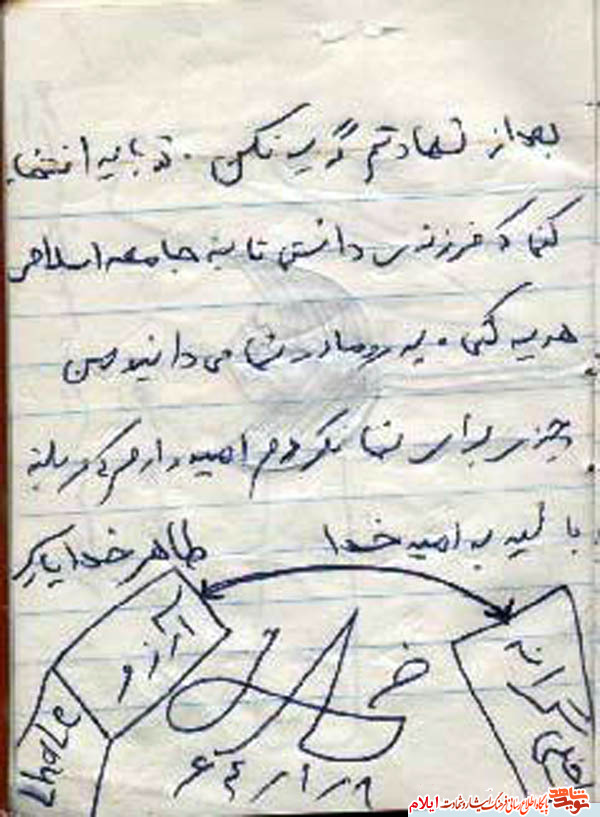 بعد از شهادتم گریه نکن. تو باید افتخار
کنی که فرزندی داشتی تا به جامعه اسلامی
هدیه کنی. پدر و مادر شما می‌دانید من
چیزی برای شما نکردم امیدوارم که مرا به
باشید به امید خدا طاهر خدایاری
آرزو
Lhale
۶۴/۱/۹
نوید شاهد پایگاه اطلاع رسانی فرهنگ ایثار و شهادت ایلام